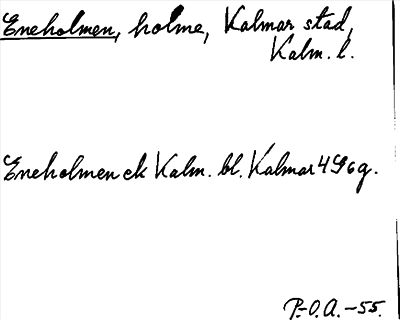 Eneholmen, holme, Kalmar stad,
Kalm. l.
Eneholmen ek Kalm. bl. Kalmar 4G6g.
P.-O.A.-55.